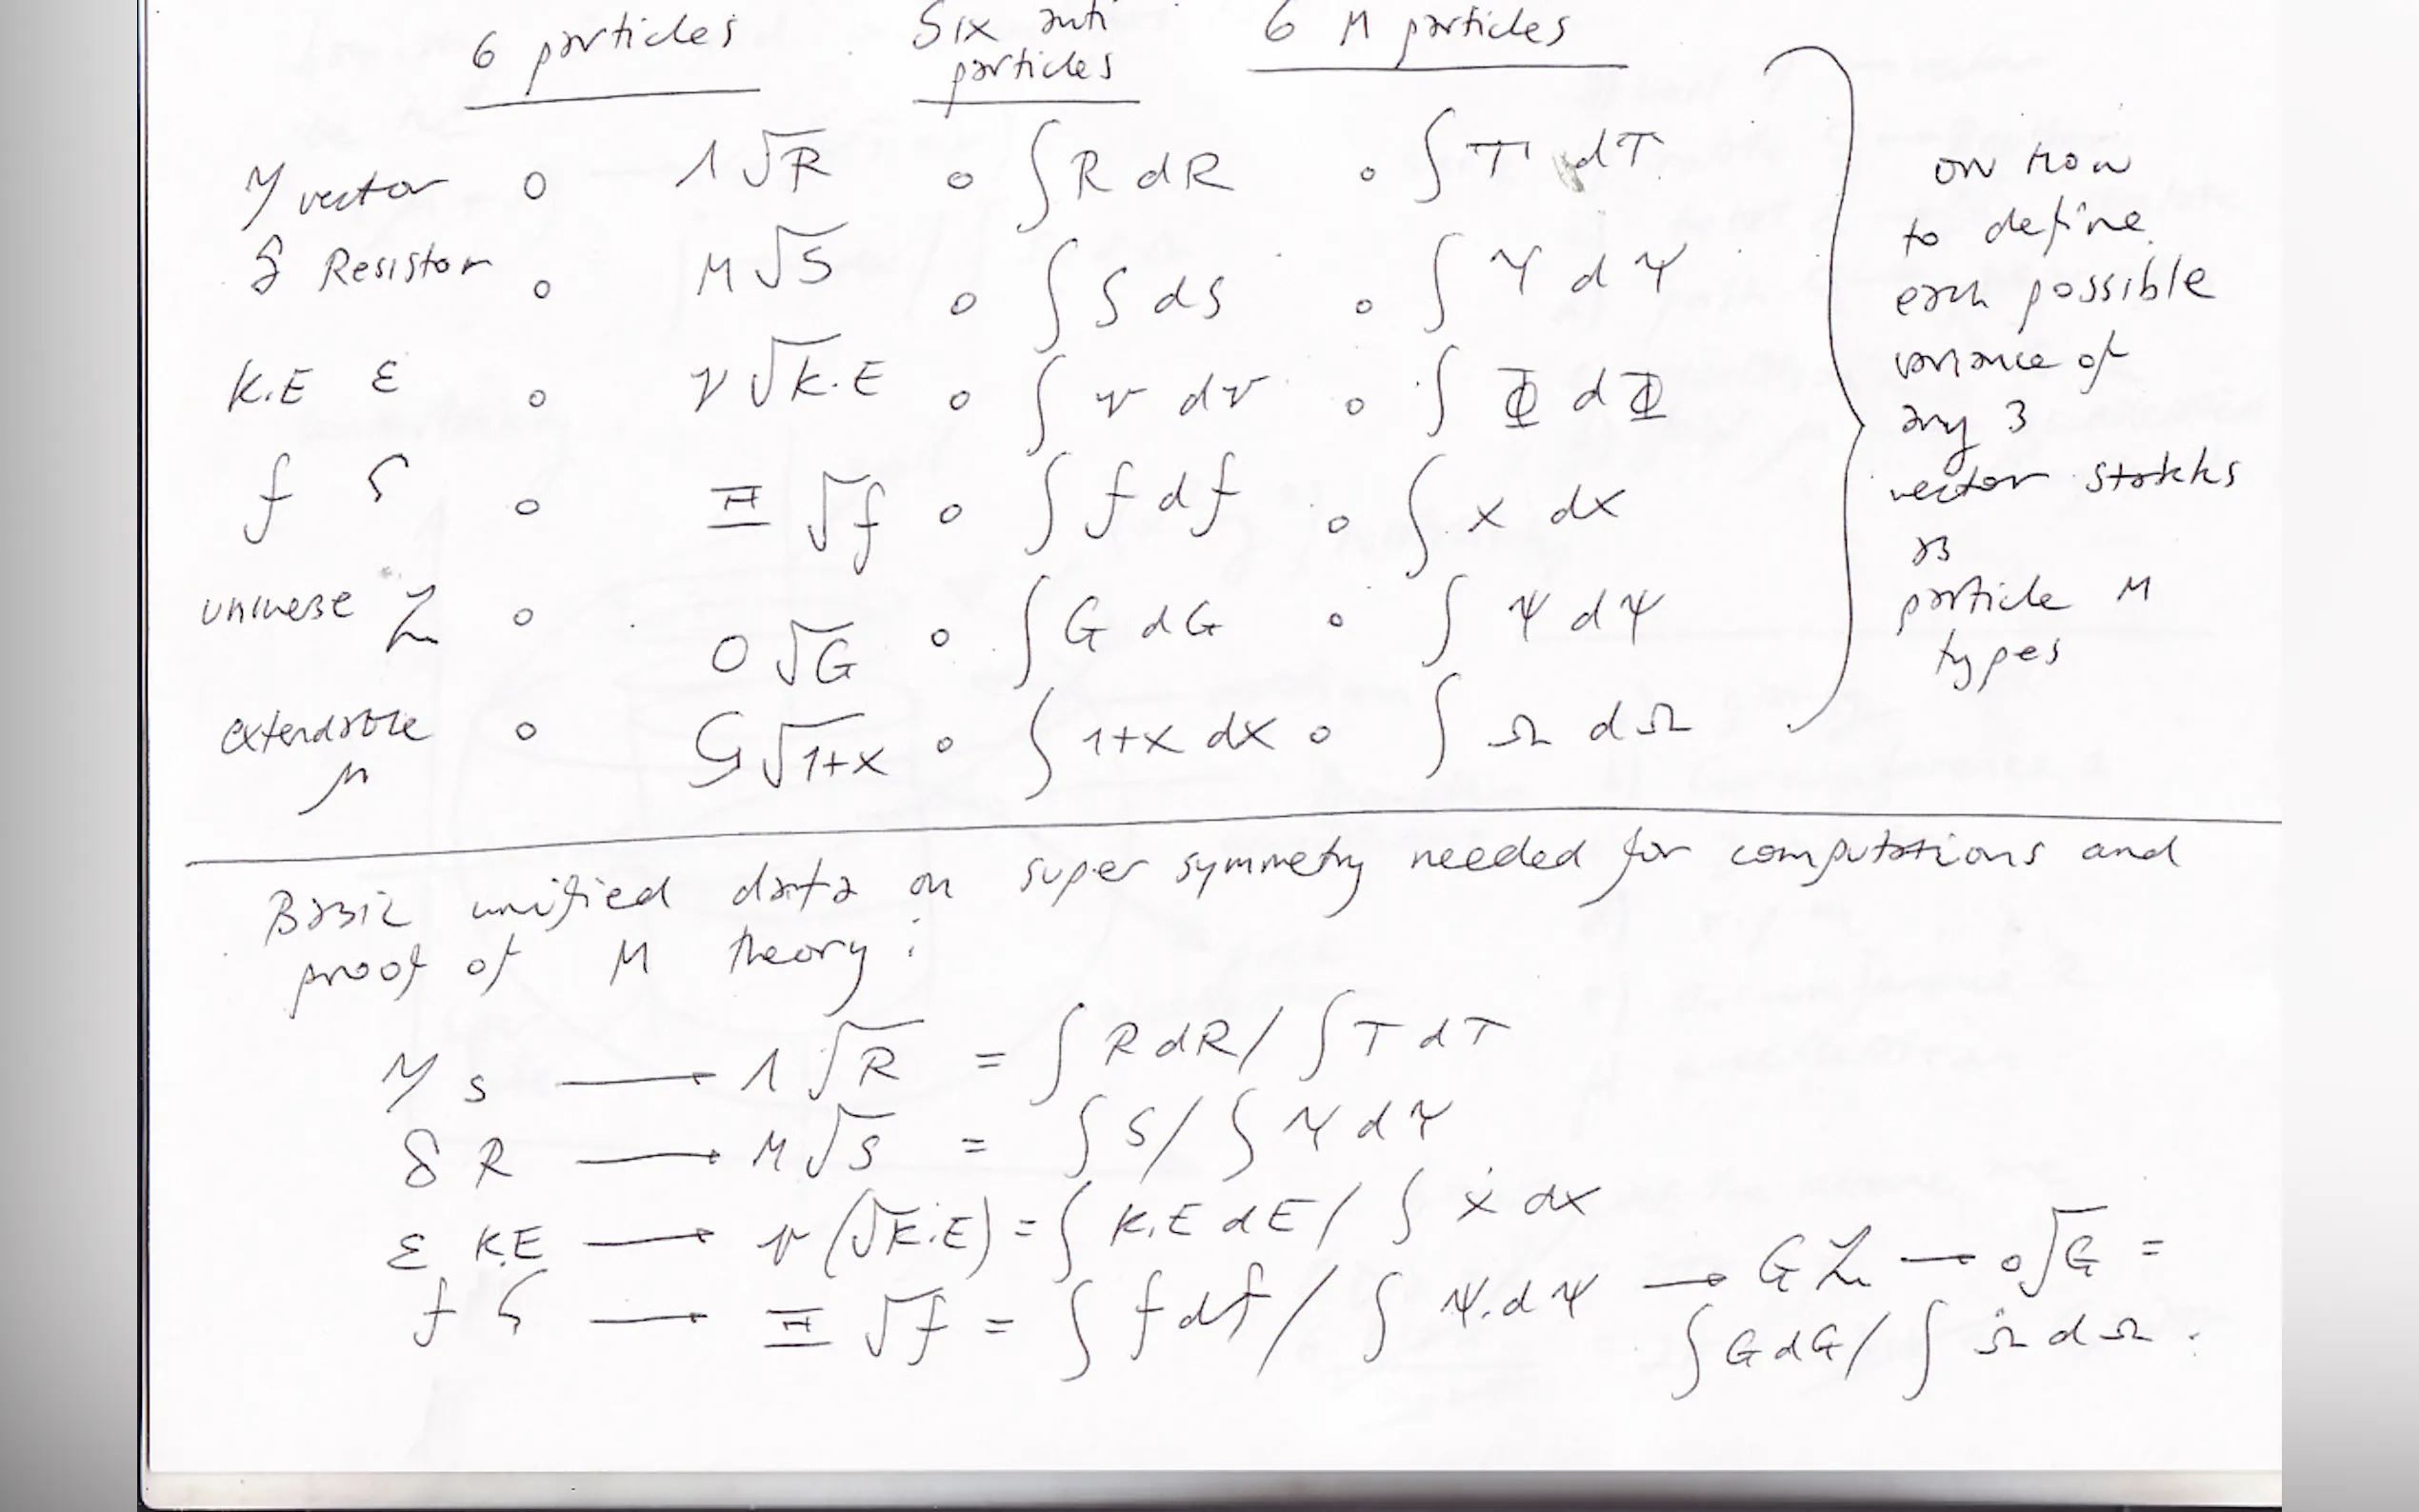 6 particles Six anti particles 6 M particles
γ vector o Λ √R o ∫ R dR o ∫ T dT
δ Resistor o M √S o ∫ S ds o ∫ Υ d Υ
K.E ε o ν √K.E o ∫ v dv o ∫ Φ d Φ
f ς o Ξ √f o ∫ f df o ∫ x dx
universe Z o O √G o ∫ G dG o ∫ Ψ dΨ
extendable μ o G √1+x o ∫ 1+x dx o ∫ Ω dΩ
on how
to define
each possible
variance of
any 3
vector stakks
as
particle M
types
Basic unified data on super symmetry needed for computations and
proof of M theory :
γ s → Λ √R = ∫ R dR / ∫ T dT
δ R → M √S = ∫ S / ∫ Υ d Υ
ε K.E → ν (√K.E) = ∫ K.E dE / ∫ ẋ dx
f ς → Ξ √f = ∫ f df / ∫ Ψ. d Ψ → G Z → o √G =
∫ G dG / ∫ Ω d Ω .